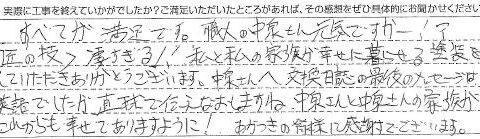 実際に工事を終えていかがでしたか？ご満足いただいたところがあれば、その感想をぜひ具体的にお聞かせください
すべてが満足です。職人の中泉さん元気ですかー！？
匠の技＞凄すぎる！！私と私の家族が幸せに暮らせる塗装を
していただきありがとうございます。中泉さんへ 交換日誌の最後のメッセージは
英語でしたが 直球で伝えなおしますね 中泉さんと中泉さんの家族が
これからも幸せでありますように！ あかつきの皆様に感謝でございます。